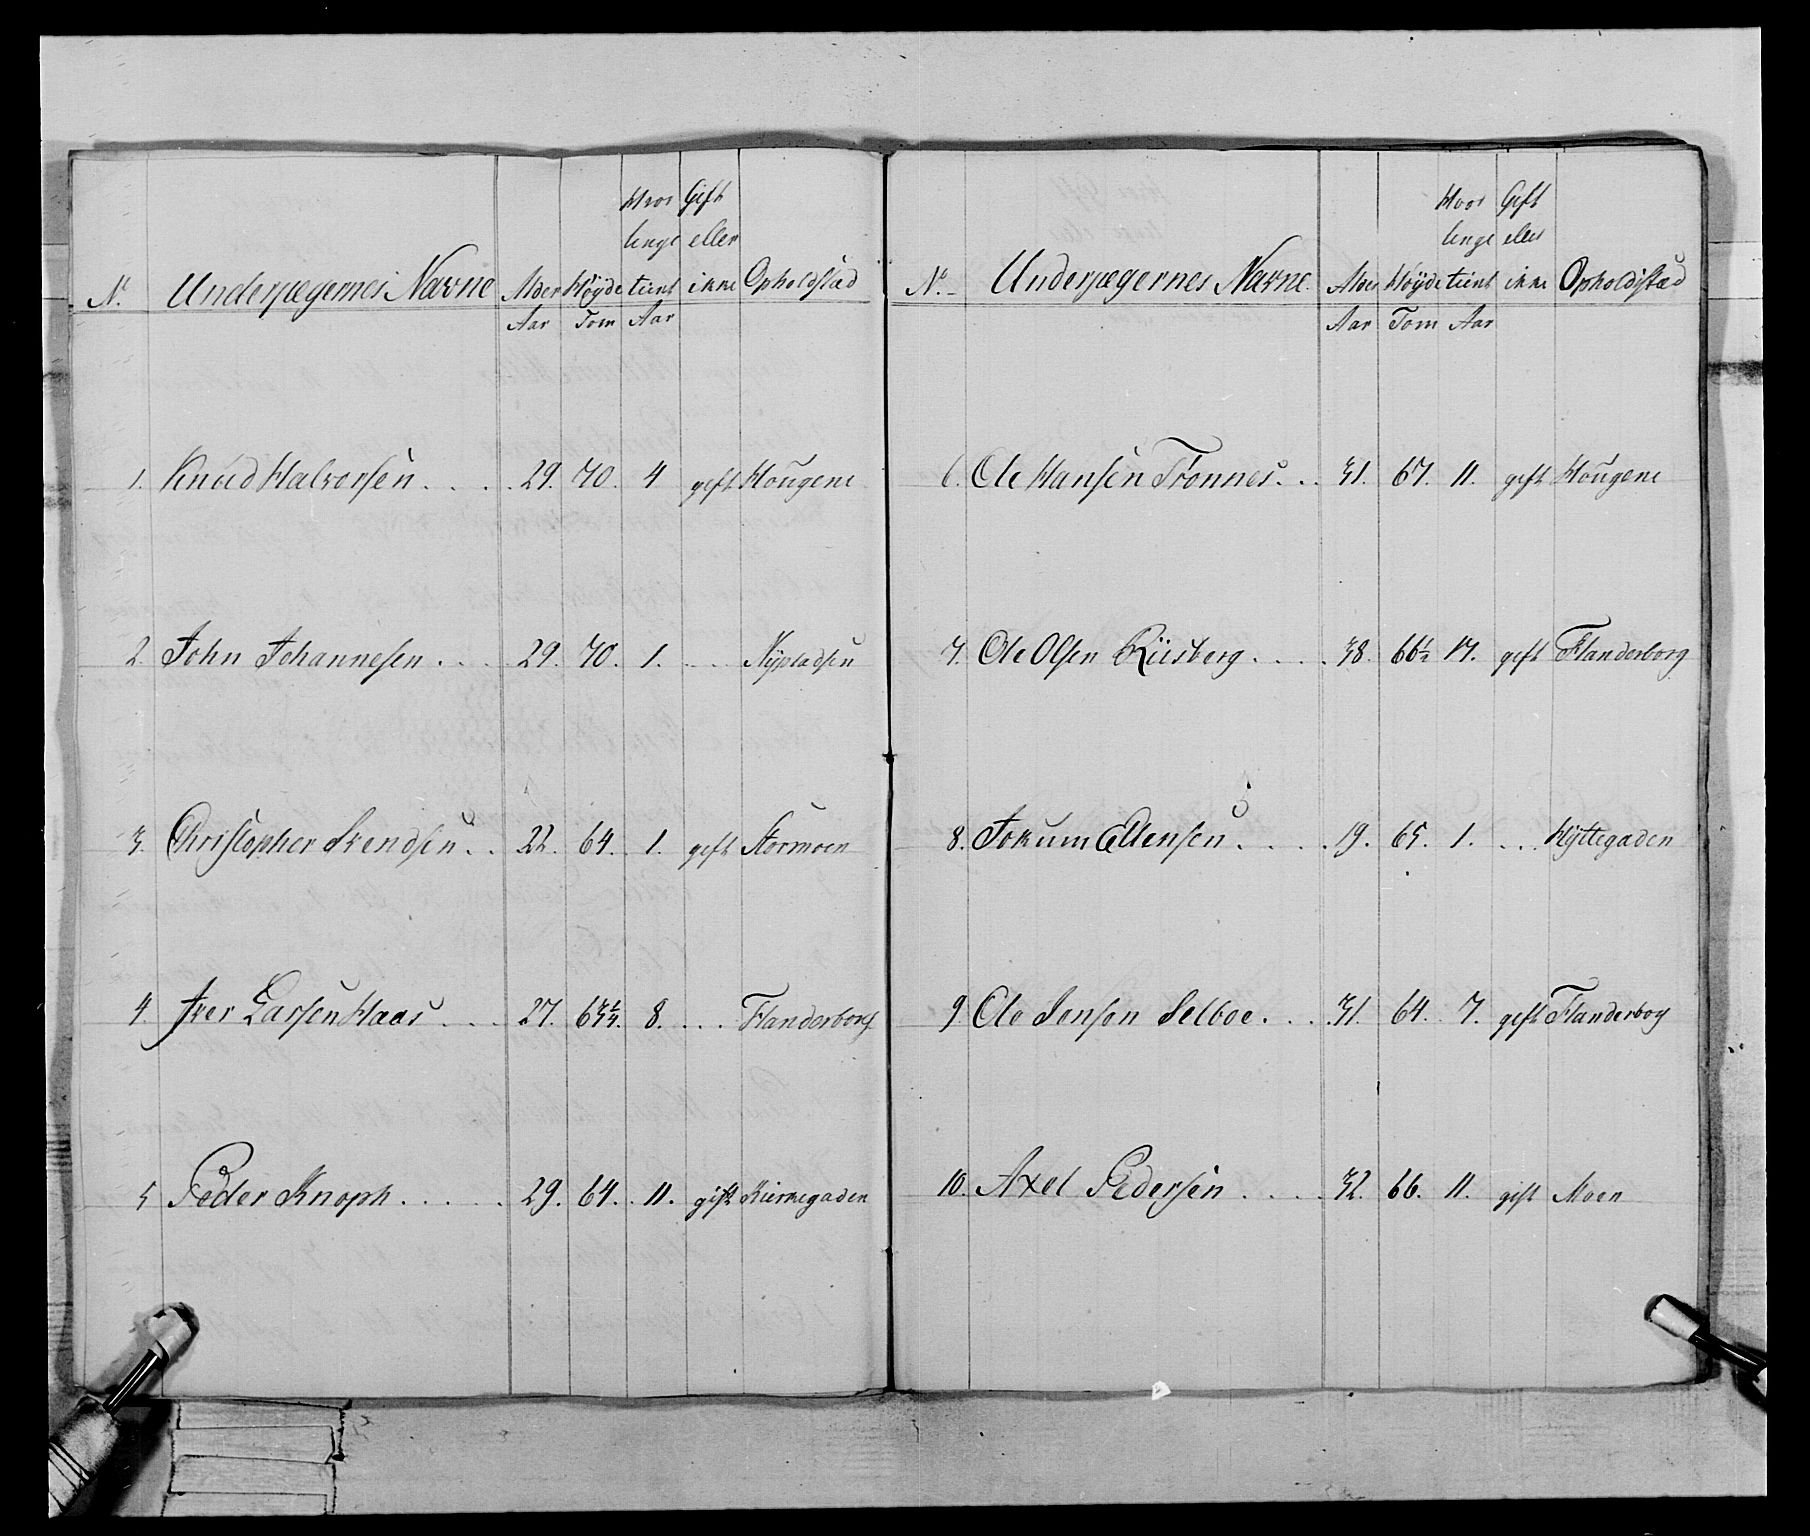 Hvor Gift
lenge eller
N. Underjægernes Navne Alder Høyde tient ikke Opholdstæd
Aar Tom Aar
1. Knud Halvorsen. . . . . 29. 70. 4 gift Hougene
2. John Johannesen. . . . 29. 70. 1. . . . Nÿpladsen
3. Christopher Svendsen. . . 22. 64. 1. gift Stormoen
4. Iver Larsen Haas . . . . 27. 63 3/4. 8. . . . Flanderborg
5 Peder Knoph. . . . . . 29. 64. 11. gift Kiernegaden
Hvor Gift
lenge eller
No. Underjægernes Navne. Alder Høÿde tient ikke Opholdstæd
Aar Tom Aar
6. Ole Hansen Trønnes. . . 31. 67. 11. gift Hougene
7. Ole Olsen Riisberg. . . . . 38. 66 1/2 17. gift Flanderborg
8. Jokum Ellensen. . . . . 19. 65. 1. . . . Hÿttegaden
9. Ole Jensen Selboe. . . . 31. 64. 7. gift Flanderbog
10. Axel Pedersen. . . . 32. 66. 11. gift Moen